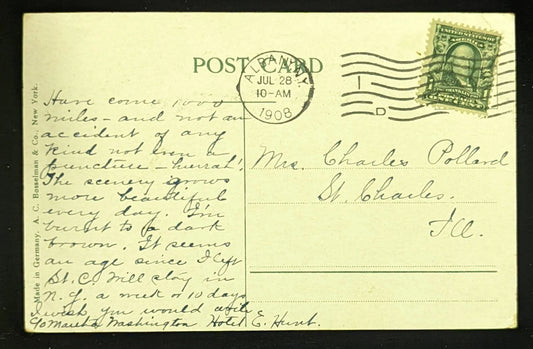 POST CARD
ALBANY, N.Y.
JUL 28
10-AM
1908
D
Made in Germany. A. C. Bosselman & Co., New York.
Have come 1000
miles - and not an
accident of any
kind not even a
puncture - hurrah!
The scenery grows
more beautiful
every day. I'm
burnt to a dark
brown. It seems
an age since I left
St. C. Will stay in
N.Y. a week or 10 days
I wish you would write
c/o Martha Washington Hotel E. Hunt.
Mrs. Charles Pollard
St. Charles.
Ill.